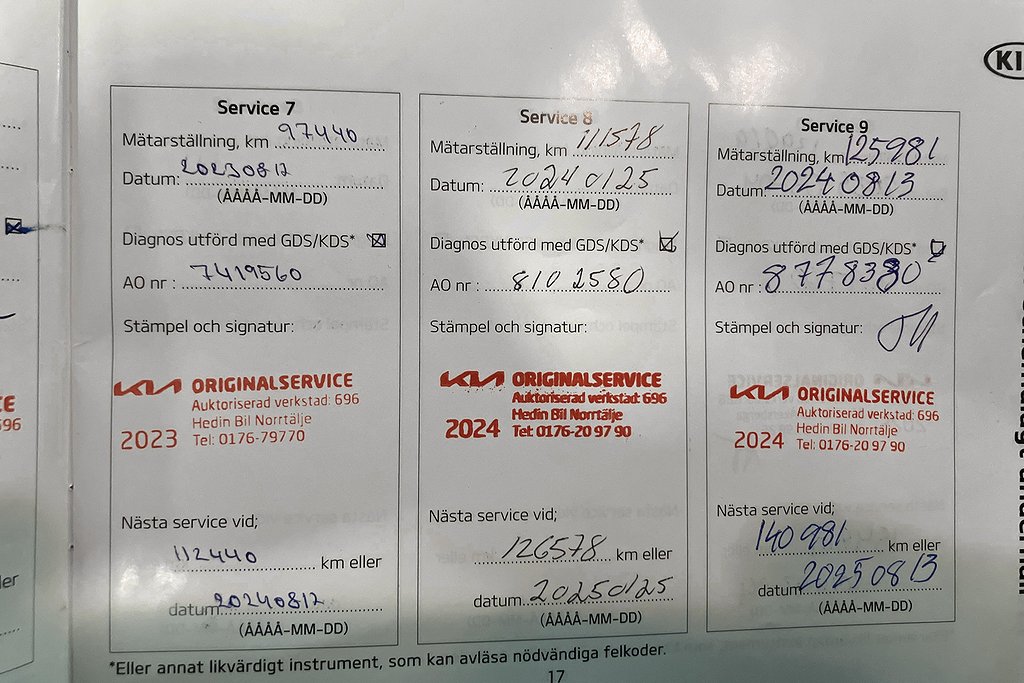 KI
Service 7
Mätarställning, km 97440
Datum: 20230812
(ÅÅÅÅ-MM-DD)
Diagnos utförd med GDS/KDS*
AO nr : 7419560
Stämpel och signatur:
KIA ORIGINALSERVICE
Auktoriserad verkstad: 696
Hedin Bil Norrtälje
2023 Tel: 0176-79770
Nästa service vid;
112440 km eller
datum 20240812
(ÅÅÅÅ-MM-DD)
Service 8
Mätarställning, km 111578
Datum: 20240125
(ÅÅÅÅ-MM-DD)
Diagnos utförd med GDS/KDS*
AO nr : 8102580
Stämpel och signatur:
KIA ORIGINALSERVICE
Auktoriserad verkstad: 696
Hedin Bil Norrtälje
2024 Tel: 0176-20 97 90
Nästa service vid;
126578 km eller
datum 20250125
(ÅÅÅÅ-MM-DD)
Service 9
Mätarställning, km 125981
Datum: 20240813
(ÅÅÅÅ-MM-DD)
Diagnos utförd med GDS/KDS*
AO nr : 8778330
Stämpel och signatur:
KIA ORIGINALSERVICE
Auktoriserad verkstad: 696
Hedin Bil Norrtälje
2024 Tel: 0176-20 97 90
Nästa service vid;
140981 km eller
datum 20250813
(ÅÅÅÅ-MM-DD)
*Eller annat likvärdigt instrument, som kan avläsa nödvändiga felkoder.
17